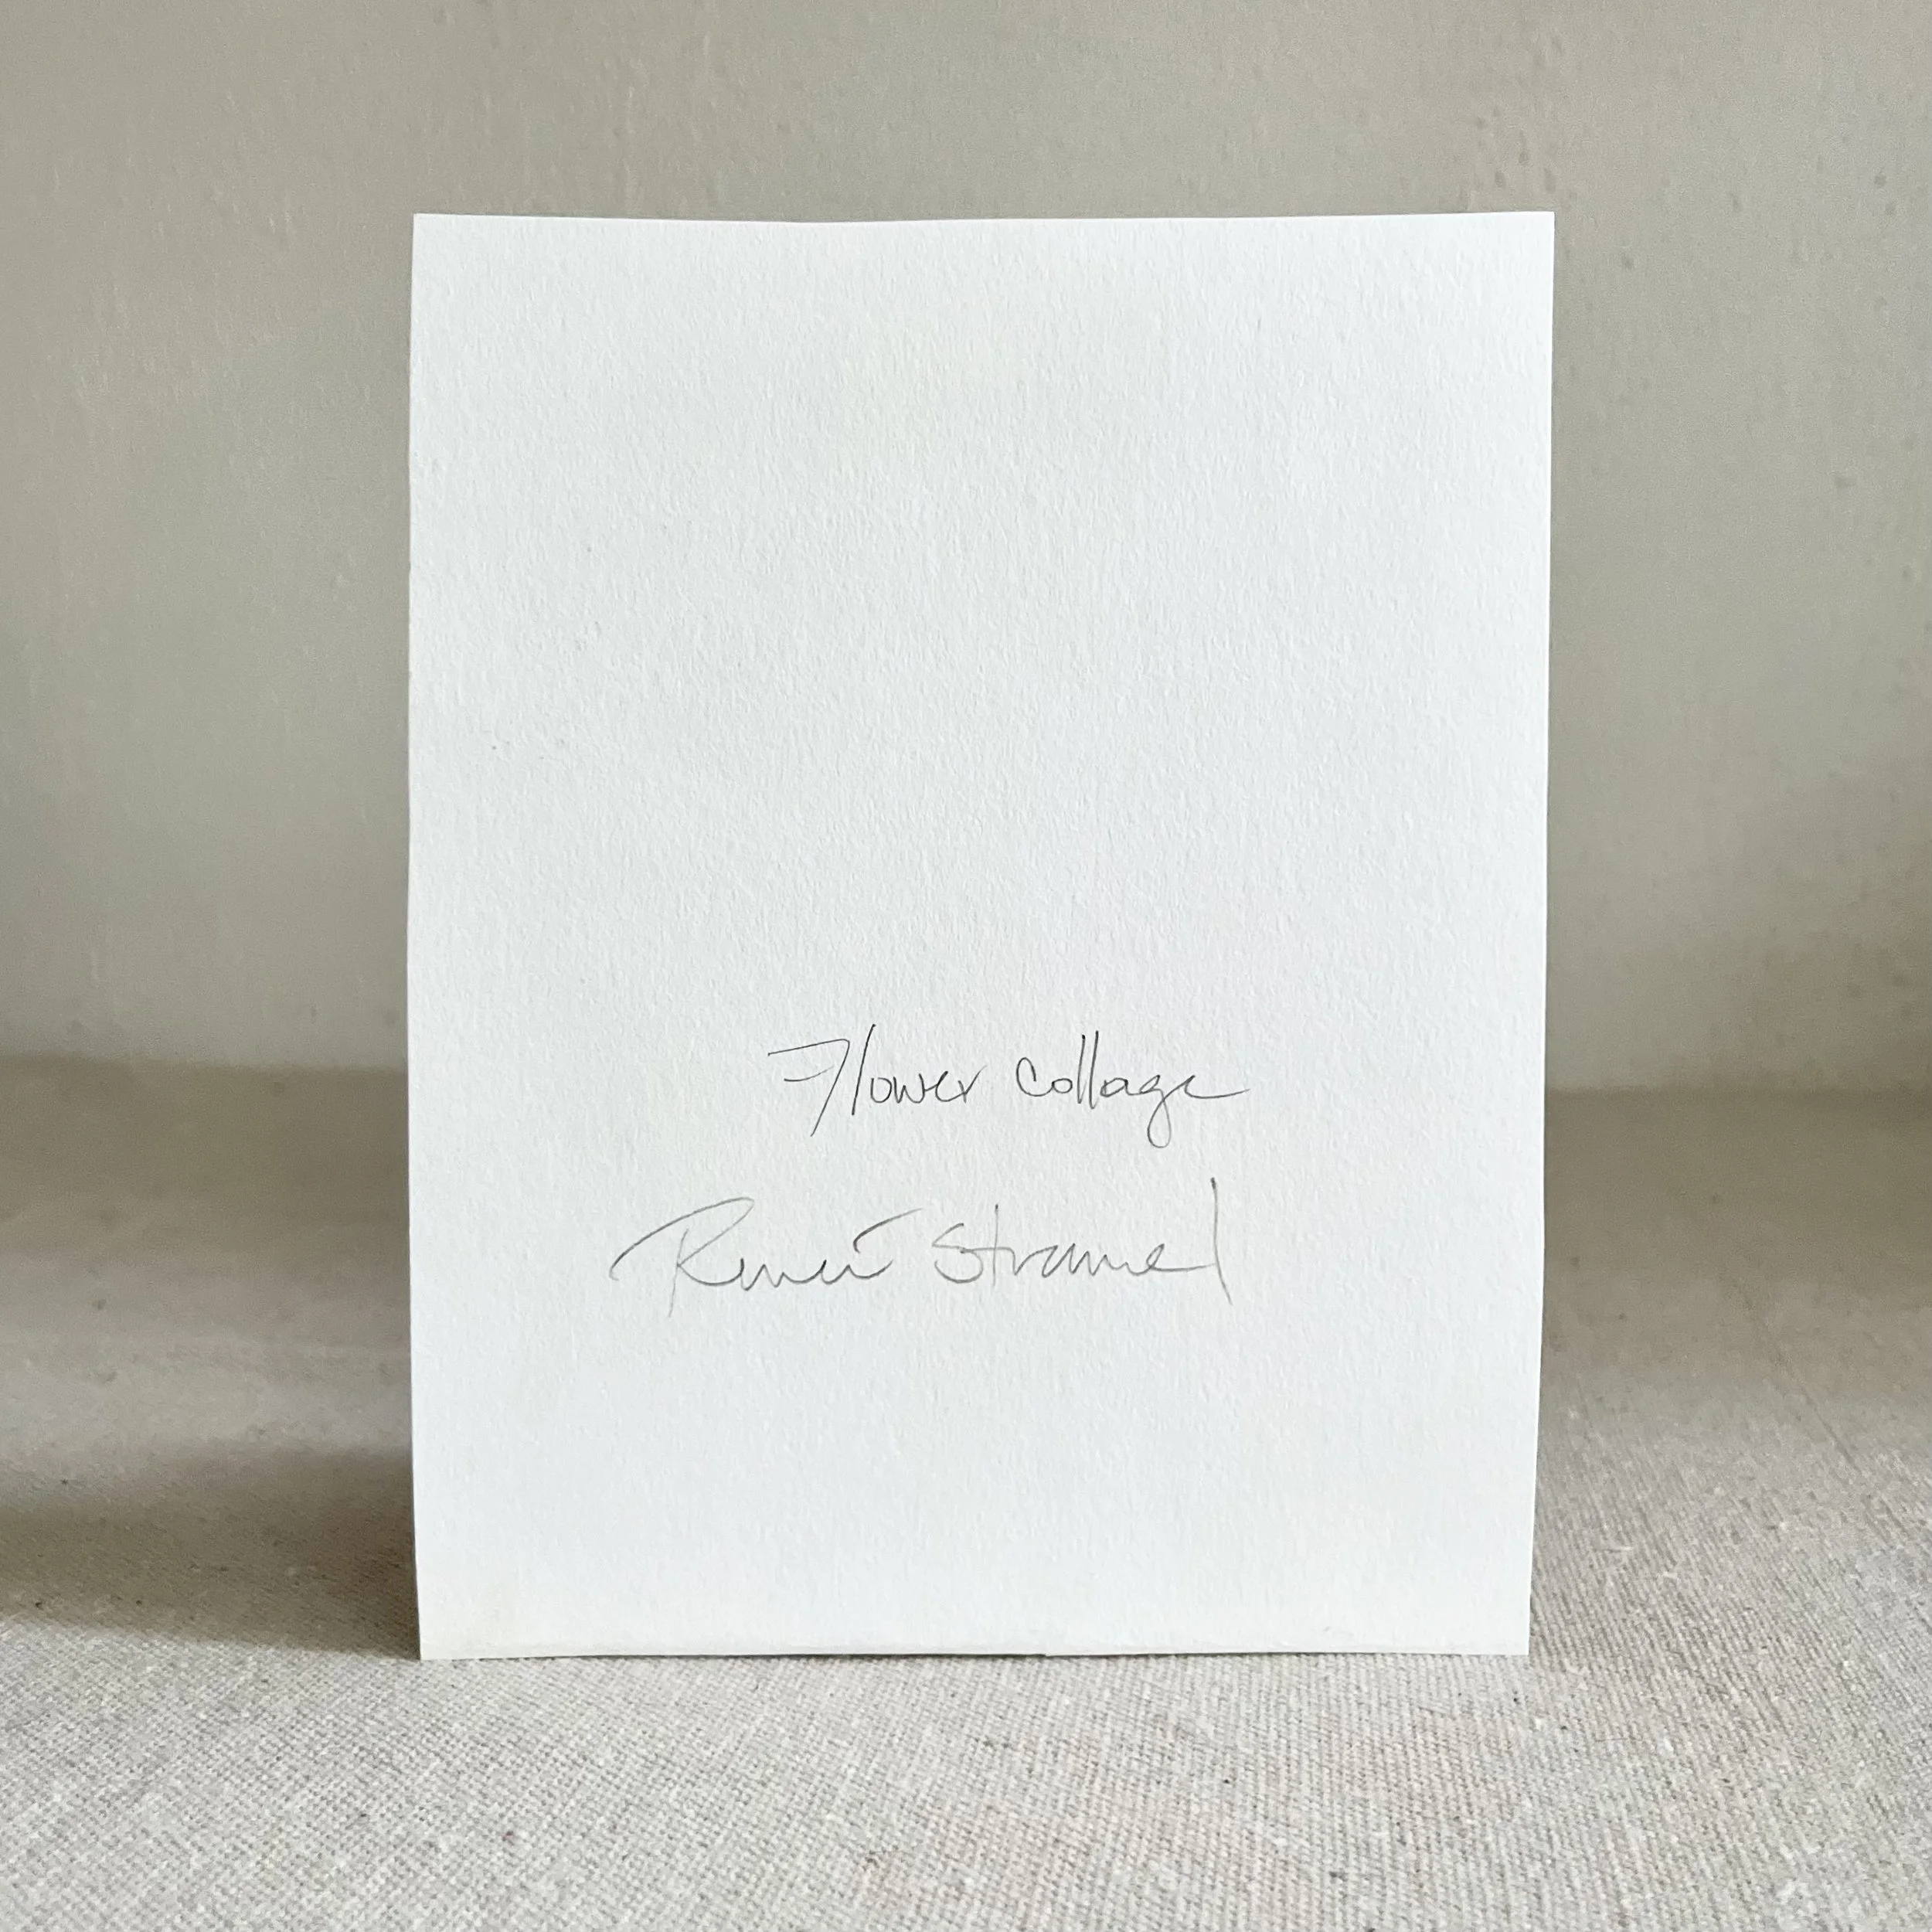 Flower Collage
Renee Stramel